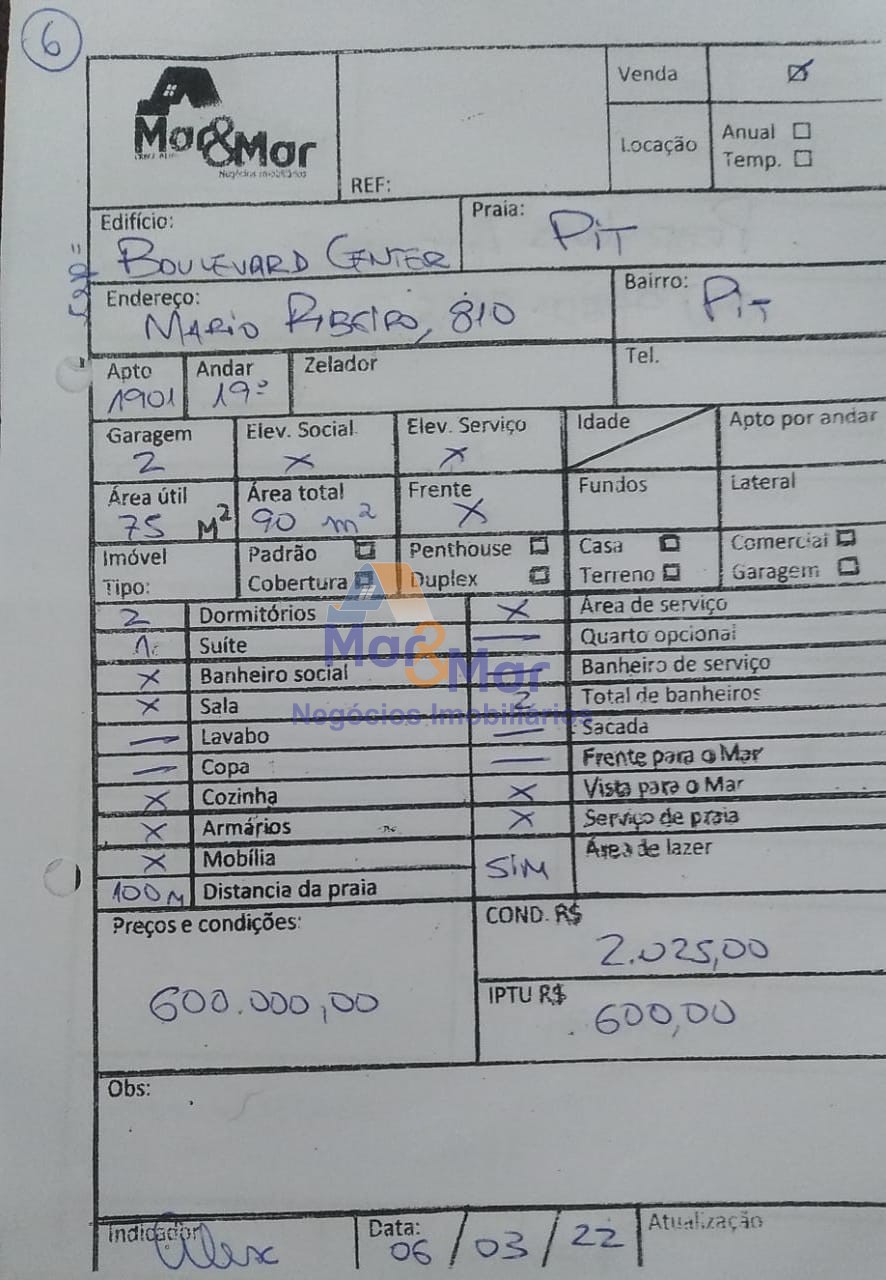 6
Mar&Mar
Negócios Imobiliários
REF:
Venda
Locação
Anual
Temp.
Edifício:
BOULEVARD CENTER
Praia:
PIT
Endereço:
MARIO RIBEIRO, 810
Bairro:
PIT
Apto
1901
Andar
19º
Zelador
Tel.
Garagem
2
Elev. Social
X
Elev. Serviço
X
Idade
Apto por andar
Área útil
75 M²
Área total
90 m²
Frente
X
Fundos
Lateral
Imóvel
Tipo:
Padrão
Cobertura
Penthouse
Duplex
Casa
Terreno
Comercial
Garagem
2 Dormitórios
X Área de serviço
1 Suíte
— Quarto opcional
X Banheiro social
Banheiro de serviço
X Sala
2 Total de banheiros
— Lavabo
— Sacada
— Copa
— Frente para o Mar
X Cozinha
X Vista para o Mar
X Armários
X Serviço de praia
X Mobília
SIM Área de lazer
100 M Distancia da praia
Mar&Mar
Negócios Imobiliários
Preços e condições:
600.000,00
COND. R$
2.025,00
IPTU R$
600,00
Obs:
Indicador
Alex
Data:
06/03/22
Atualização